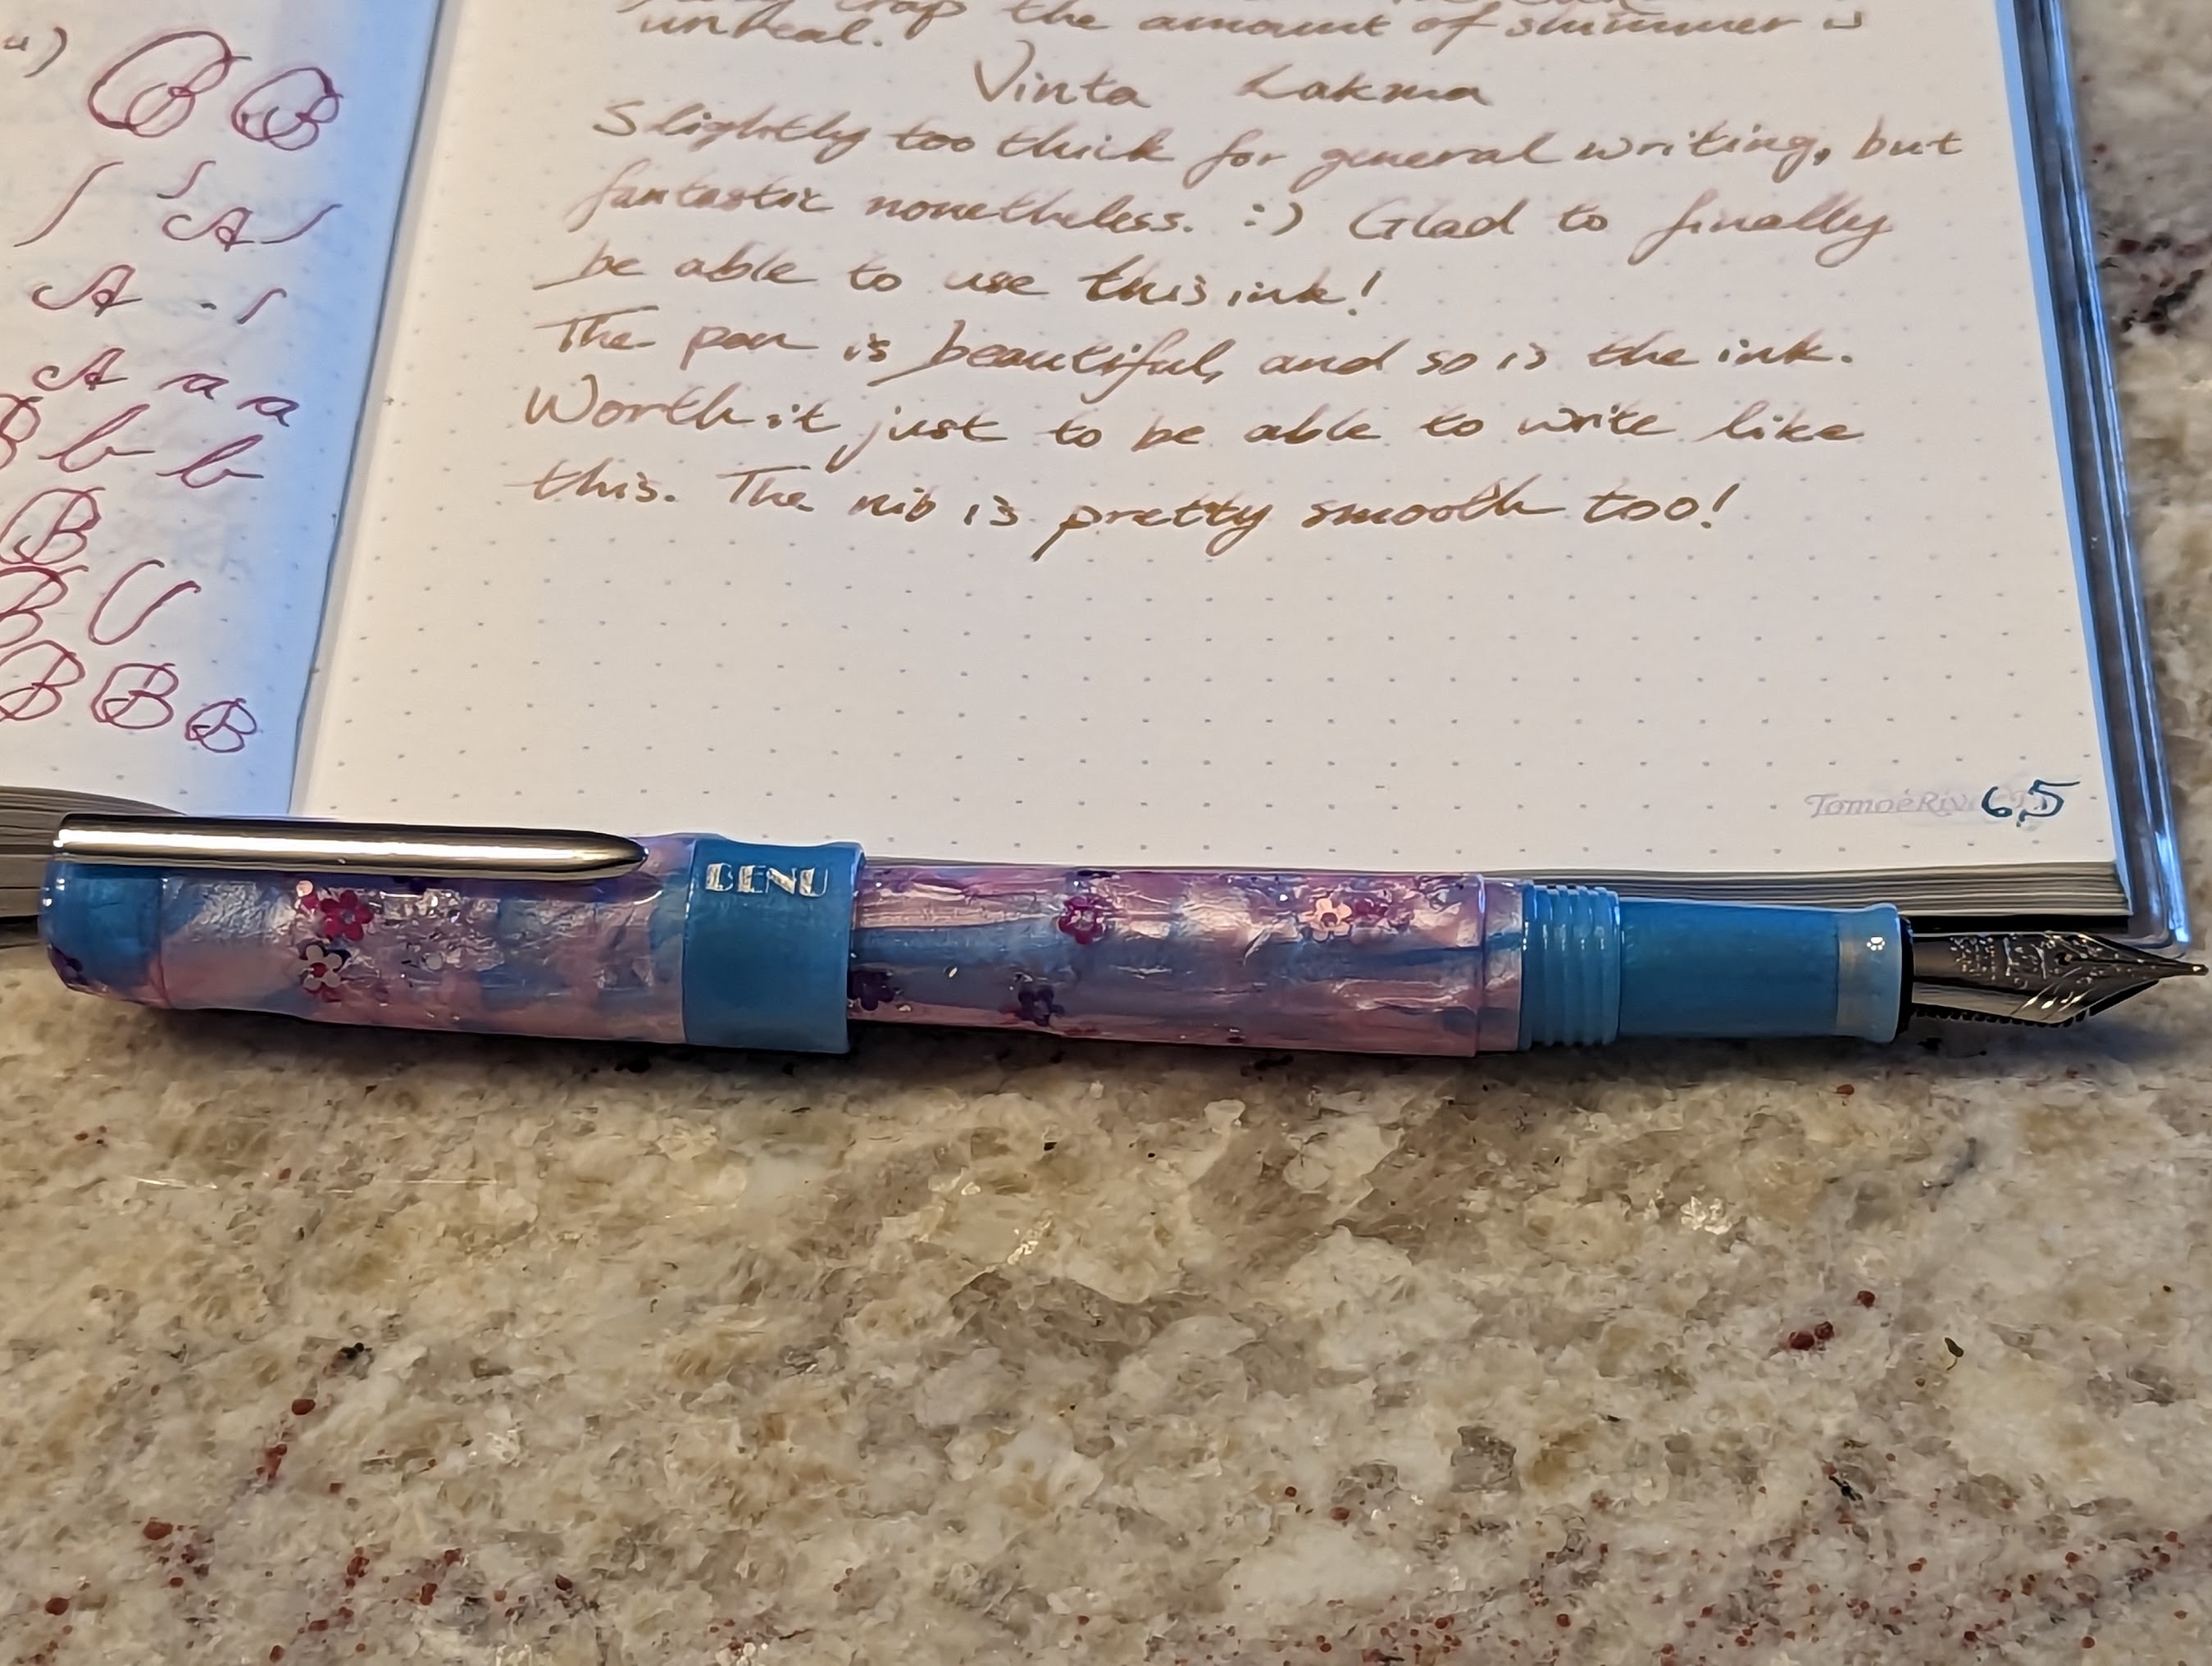 u)
B B
A
A
A a a
B b b
B
B U
B B B
crap the amount of shimmer is
unreal.
Vinta Lakma
Slightly too thick for general writing, but
fantastic nonetheless. :) Glad to finally
be able to use this ink!
The pen is beautiful, and so is the ink.
Worth it just to be able to write like
this. The nib is pretty smooth too!
TomoeRiver
65
BENU